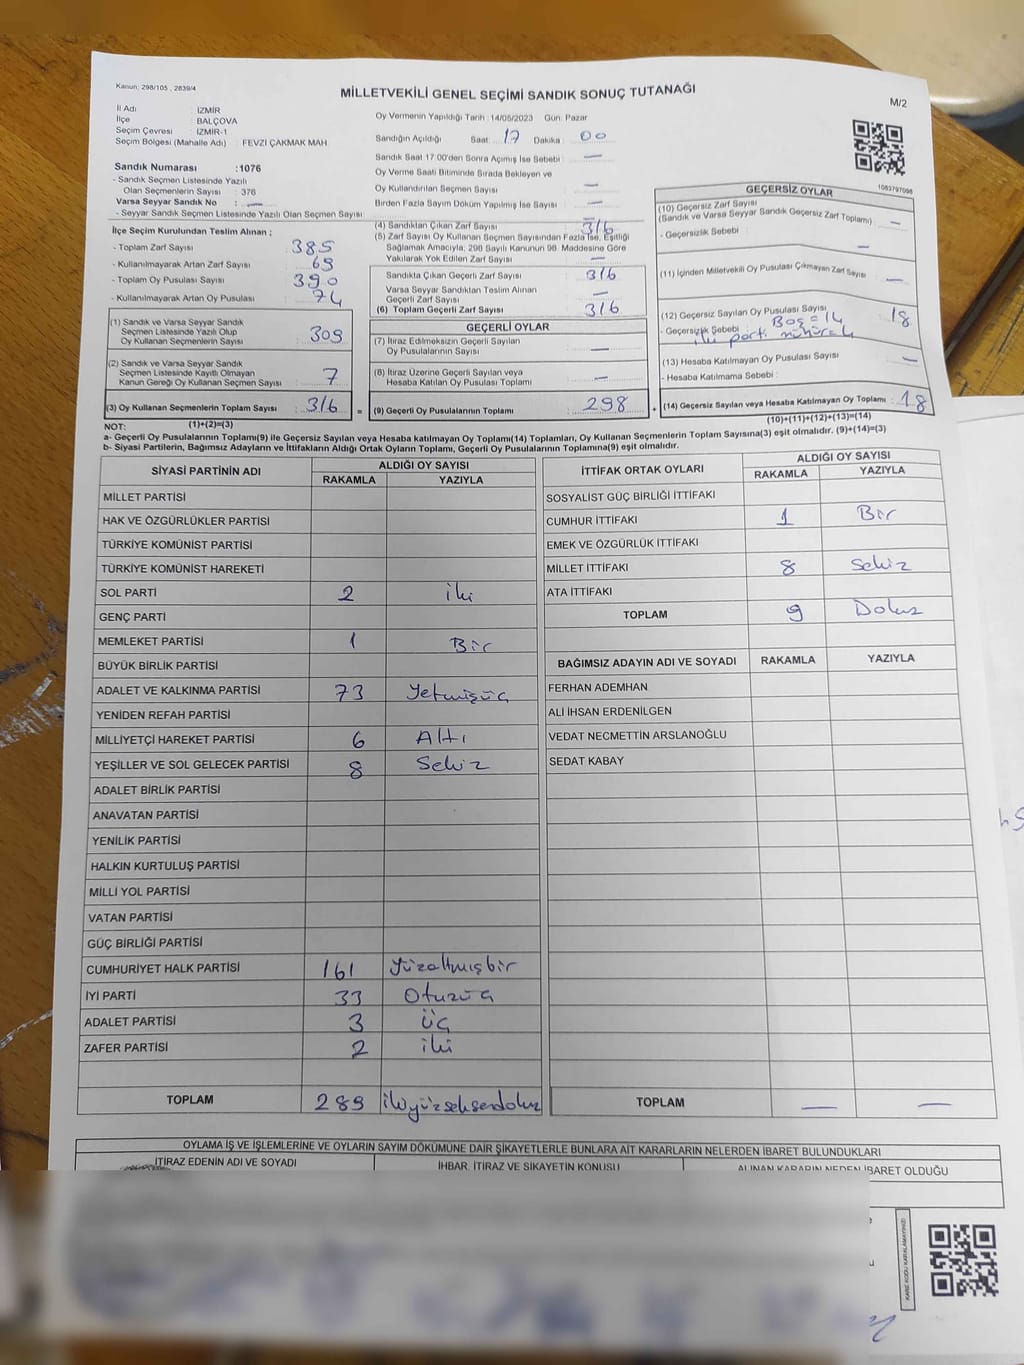 Kanun: 298/105 , 2839/4
MİLLETVEKİLİ GENEL SEÇİMİ SANDIK SONUÇ TUTANAĞI
M/2
İl Adı : İZMİR
İlçe : BALÇOVA
Seçim Çevresi : İZMİR-1
Seçim Bölgesi (Mahalle Adı) : FEVZİ ÇAKMAK MAH.
Sandık Numarası :1076
- Sandık Seçmen Listesinde Yazılı
Olan Seçmenlerin Sayısı : 376
Varsa Seyyar Sandık No : —
- Seyyar Sandık Seçmen Listesinde Yazılı Olan Seçmen Sayısı
Oy Vermenin Yapıldığı Tarih : 14/05/2023 Gün: Pazar
Sandığın Açıldığı Saat 17 Dakika : 00
Sandık Saat 17.00'den Sonra Açımış İse Sebebi : —
Oy Verme Saati Bitiminde Sırada Bekleyen ve
Oy Kullandırılan Seçmen Sayısı : —
Birden Fazla Sayım Döküm Yapılmış İse Sayısı : —
1083797096
İlçe Seçim Kurulundan Teslim Alınan ;
- Toplam Zarf Sayısı : 385
- Kullanılmayarak Artan Zarf Sayısı : 69
- Toplam Oy Pusulası Sayısı : 390
- Kullanılmayarak Artan Oy Pusulası : 74
(1) Sandık ve Varsa Seyyar Sandık
Seçmen Listesinde Yazılı Olup
Oy Kullanan Seçmenlerin Sayısı : 309
(2) Sandık ve Varsa Seyyar Sandık
Seçmen Listesinde Kayıtlı Olmayan
Kanun Gereği Oy Kullanan Seçmen Sayısı : 7
(3) Oy Kullanan Seçmenlerin Toplam Sayısı : 316
(4) Sandıktan Çıkan Zarf Sayısı : 316
(5) Zarf Sayısı Oy Kullanan Seçmen Sayısından Fazla İse, Eşitliği
Sağlamak Amacıyla; 298 Sayılı Kanunun 98. Maddesine Göre
Yakılarak Yok Edilen Zarf Sayısı : —
Sandıkta Çıkan Geçerli Zarf Sayısı : 316
Varsa Seyyar Sandıktan Teslim Alınan
Geçerli Zarf Sayısı : —
(6) Toplam Geçerli Zarf Sayısı : 316
GEÇERLİ OYLAR
(7) İtiraz Edilmeksizin Geçerli Sayılan
Oy Pusulalarının Sayısı : —
(8) İtiraz Üzerine Geçerli Sayılan veya
Hesaba Katılan Oy Pusulası Toplamı : —
= (9) Geçerli Oy Pusulalarının Toplamı : 298 +
GEÇERSİZ OYLAR
(10) Geçersiz Zarf Sayısı
(Sandık ve Varsa Seyyar Sandık Geçersiz Zarf Toplamı) : —
- Geçersizlik Sebebi : —
(11) İçinden Milletvekili Oy Pusulası Çıkmayan Zarf Sayısı : —
(12) Geçersiz Sayılan Oy Pusulası Sayısı : 18
- Geçersizlik Sebebi : Boş=14
iki parti mühürlü
(13) Hesaba Katılmayan Oy Pusulası Sayısı : —
- Hesaba Katılmama Sebebi :
(14) Geçersiz Sayılan veya Hesaba Katılmayan Oy Toplamı : 18
NOT: (1)+(2)=(3) (10)+(11)+(12)+(13)=(14)
a- Geçerli Oy Pusulalarının Toplamı(9) ile Geçersiz Sayılan veya Hesaba katılmayan Oy Toplamı(14) Toplamları, Oy Kullanan Seçmenlerin Toplam Sayısına(3) eşit olmalıdır. (9)+(14)=(3)
b- Siyasi Partilerin, Bağımsız Adayların ve İttifakların Aldığı Ortak Oyların Toplamı, Geçerli Oy Pusulalarının Toplamına(9) eşit olmalıdır.
SİYASİ PARTİNİN ADI ALDIĞI OY SAYISI
RAKAMLA YAZIYLA
MİLLET PARTİSİ
HAK VE ÖZGÜRLÜKLER PARTİSİ
TÜRKİYE KOMÜNİST PARTİSİ
TÜRKİYE KOMÜNİST HAREKETİ
SOL PARTİ 2 iki
GENÇ PARTİ
MEMLEKET PARTİSİ 1 Bir
BÜYÜK BİRLİK PARTİSİ
ADALET VE KALKINMA PARTİSİ 73 Yetmişüç
YENİDEN REFAH PARTİSİ
MİLLİYETÇİ HAREKET PARTİSİ 6 Altı
YEŞİLLER VE SOL GELECEK PARTİSİ 8 Sekiz
ADALET BİRLİK PARTİSİ
ANAVATAN PARTİSİ
YENİLİK PARTİSİ
HALKIN KURTULUŞ PARTİSİ
MİLLİ YOL PARTİSİ
VATAN PARTİSİ
GÜÇ BİRLİĞİ PARTİSİ
CUMHURİYET HALK PARTİSİ 161 Yüzaltmışbir
İYİ PARTİ 33 Otuzüç
ADALET PARTİSİ 3 üç
ZAFER PARTİSİ 2 iki
TOPLAM 289 ikiyüzseksendokuz
İTTİFAK ORTAK OYLARI ALDIĞI OY SAYISI
RAKAMLA YAZIYLA
SOSYALİST GÜÇ BİRLİĞİ İTTİFAKI
CUMHUR İTTİFAKI 1 Bir
EMEK VE ÖZGÜRLÜK İTTİFAKI
MİLLET İTTİFAKI 8 Sekiz
ATA İTTİFAKI
TOPLAM 9 Dokuz
BAĞIMSIZ ADAYIN ADI VE SOYADI RAKAMLA YAZIYLA
FERHAN ADEMHAN
ALİ İHSAN ERDENİLGEN
VEDAT NECMETTİN ARSLANOĞLU
SEDAT KABAY
TOPLAM — —
OYLAMA İŞ VE İŞLEMLERİNE VE OYLARIN SAYIM DÖKÜMÜNE DAİR ŞİKAYETLERLE BUNLARA AİT KARARLARIN NELERDEN İBARET BULUNDUKLARI
İTİRAZ EDENİN ADI VE SOYADI İHBAR, İTİRAZ VE ŞİKAYETİN KONUSU ALINAN KARARIN NEDEN İBARET OLDUĞU
KARE KODU KARALAMAYINIZ!